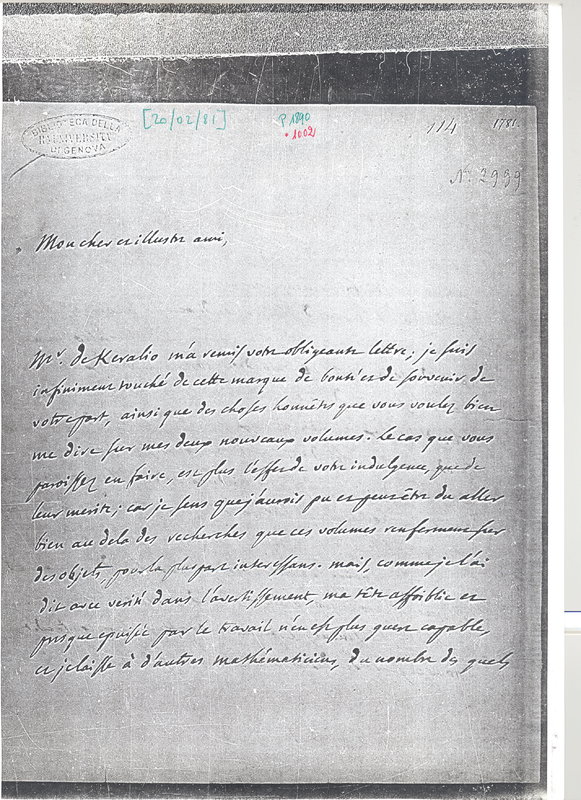 BIBLIOTECA DELLA
R. UNIVERSITÀ
DI GENOVA
[20/02/81]
P 1890
• 1002
114
1781
N.º 2939
Mon cher et illustre ami,
Mr. de Keralio m'a remis votre obligeante lettre; je suis
infiniment touché de cette marque de bonté et de souvenir de
votre part, ainsi que des choses honnêtes que vous voulez bien
me dire sur mes deux nouveaux volumes. Le cas que vous
paroissez en faire, est plus l'effet de votre indulgence, que de
leur merite; car je sens que j'aurois pu et peut être du aller
bien au dela des recherches que ces volumes renferment sur
des objets, pour la plus part interessans. mais, comme je l'ai
dit avec verité dans l'avertissement, ma tête affoiblie et
presque epuisée par le travail n'en est plus guere capable,
et je laisse à d'autres mathématiciens, du nombre des quels